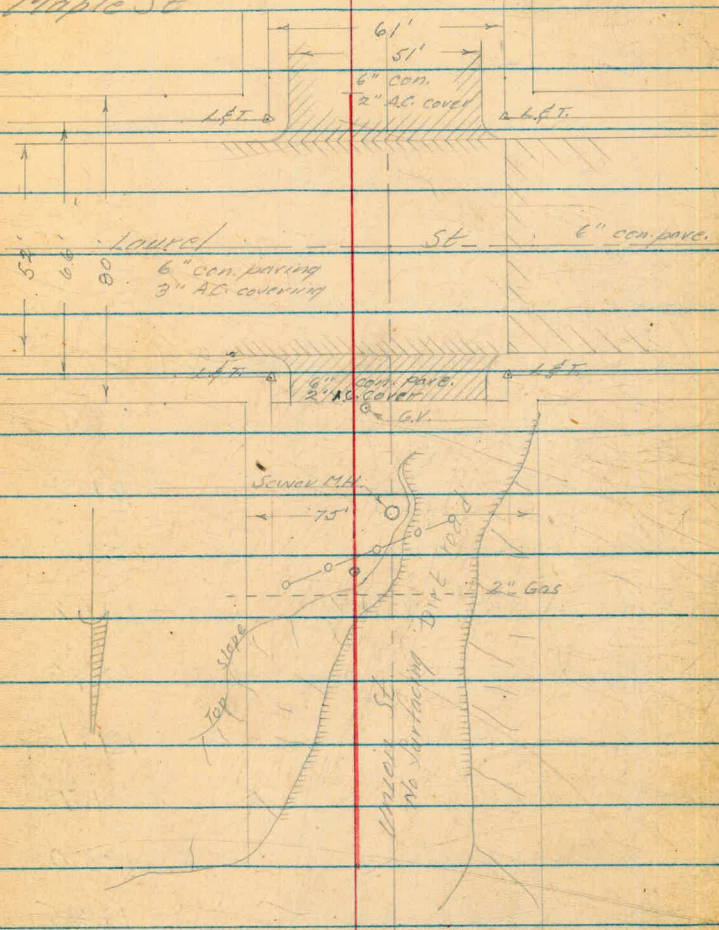 Maple St
61'
51'
6" con.
2" A.C. cover
L.&T.
L.&T.
52'
66'
80'
Laurel St
6" con. pave.
6" con. paving
3" A.C. covering
L.&T.
L.&T.
6" con. pave.
2" A.C. cover
G.V.
Sewer M.H.
75'
2" Gas
Top Slope
Dirt road
Union St
No Surfacing